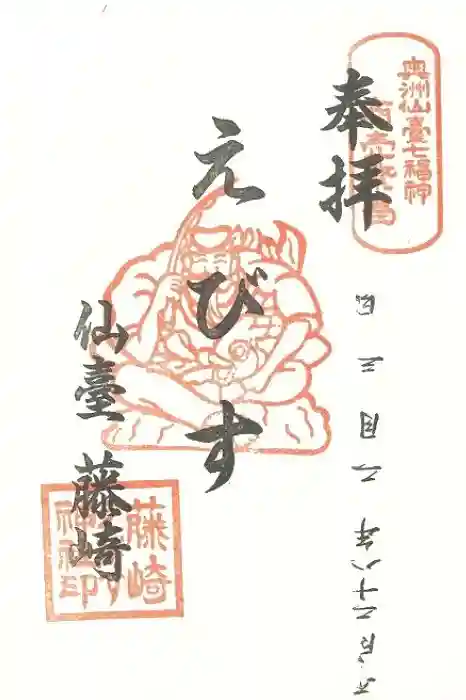 奥洲仙臺七福神
奉拝
平成二十八年 月三日
えびす
仙臺 藤崎
藤崎
神社印